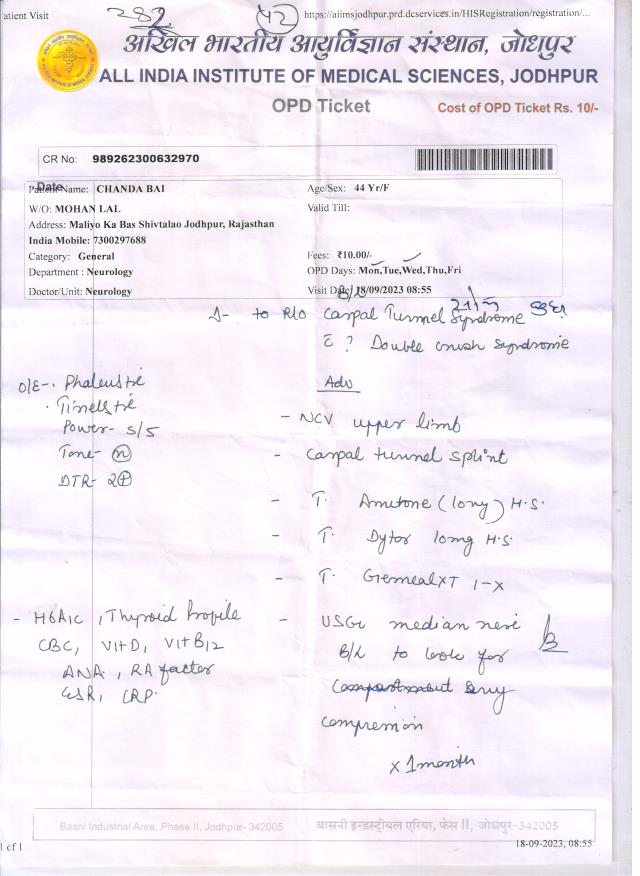 atient Visit
282
42
https://aiimsjodhpur.prd.dcservices.in/HISRegistration/registration/...
अखिल भारतीय आयुर्विज्ञान संस्थान, जोधपुर
ALL INDIA INSTITUTE OF MEDICAL SCIENCES, JODHPUR
OPD Ticket
Cost of OPD Ticket Rs. 10/-
CR No: 989262300632970
Date
Patient Name: CHANDA BAI
Age/Sex: 44 Yr/F
W/O: MOHAN LAL
Valid Till:
Address: Maliyo Ka Bas Shivtalao Jodhpur, Rajasthan
India Mobile: 7300297688
Category: General
Fees: ₹10.00/-
Department : Neurology
OPD Days: Mon,Tue,Wed,Thu,Fri
Doctor/Unit: Neurology
Visit Date: 18/09/2023 08:55
B/L
Δ- to R/O Carpal Tunnel Syndrome
c̄ ? Double crush syndrome
O/E-. Phalens +ve
. Tinels +ve
Power- 5/5
Tone- (n)
DTR- 2+
Adv
- NCV upper limb
- Carpal tunnel splint
- T. Amitone (10mg) H.S.
- T. Dytor 10mg H.S.
- T. GemcalXT 1-x
- HbA1C, Thyroid Profile
CBC, Vit D, Vit B12
ANA, RA factor
ESR, CRP.
- USG median nerve
B/L to look for
compression
x 1 month
Basni Industrial Area, Phase II, Jodhpur- 342005
बासनी इन्डस्ट्रीयल एरिया, फेस II, जोधपुर-342005
1 of 1
18-09-2023, 08:55